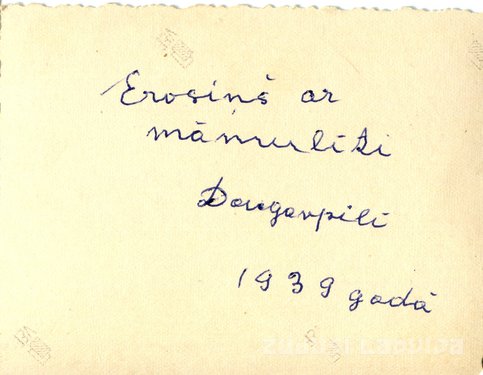 Erosiņš ar
māmulīti
Daugavpilī
1939 godā
zudusilatvija